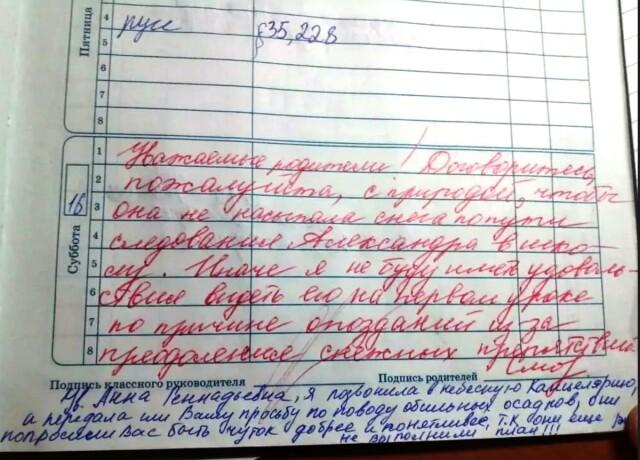 Пятница
4 рус §35, 228
5
6
7
8
Суббота
16
1 Уважаемые родители! Договоритесь,
2 пожалуйста, с природой, чтобы
3 она не насыпала снега по пути
4 следования Александра в шко-
5 лу. Иначе я не буду иметь удоволь-
6 ствия видеть его на первом уроке
7 по причине опозданий из за
8 преодоления снежных препятствий
Подпись классного руководителя Подпись родителей
Ув. Анна Геннадьевна, я позвонила в небесную канцелярию,
и передала им Вашу просьбу по поводу обильных осадков, они
попросили Вас быть чуток добрее и понятливее, т.к они еще
не выполнили план!!!